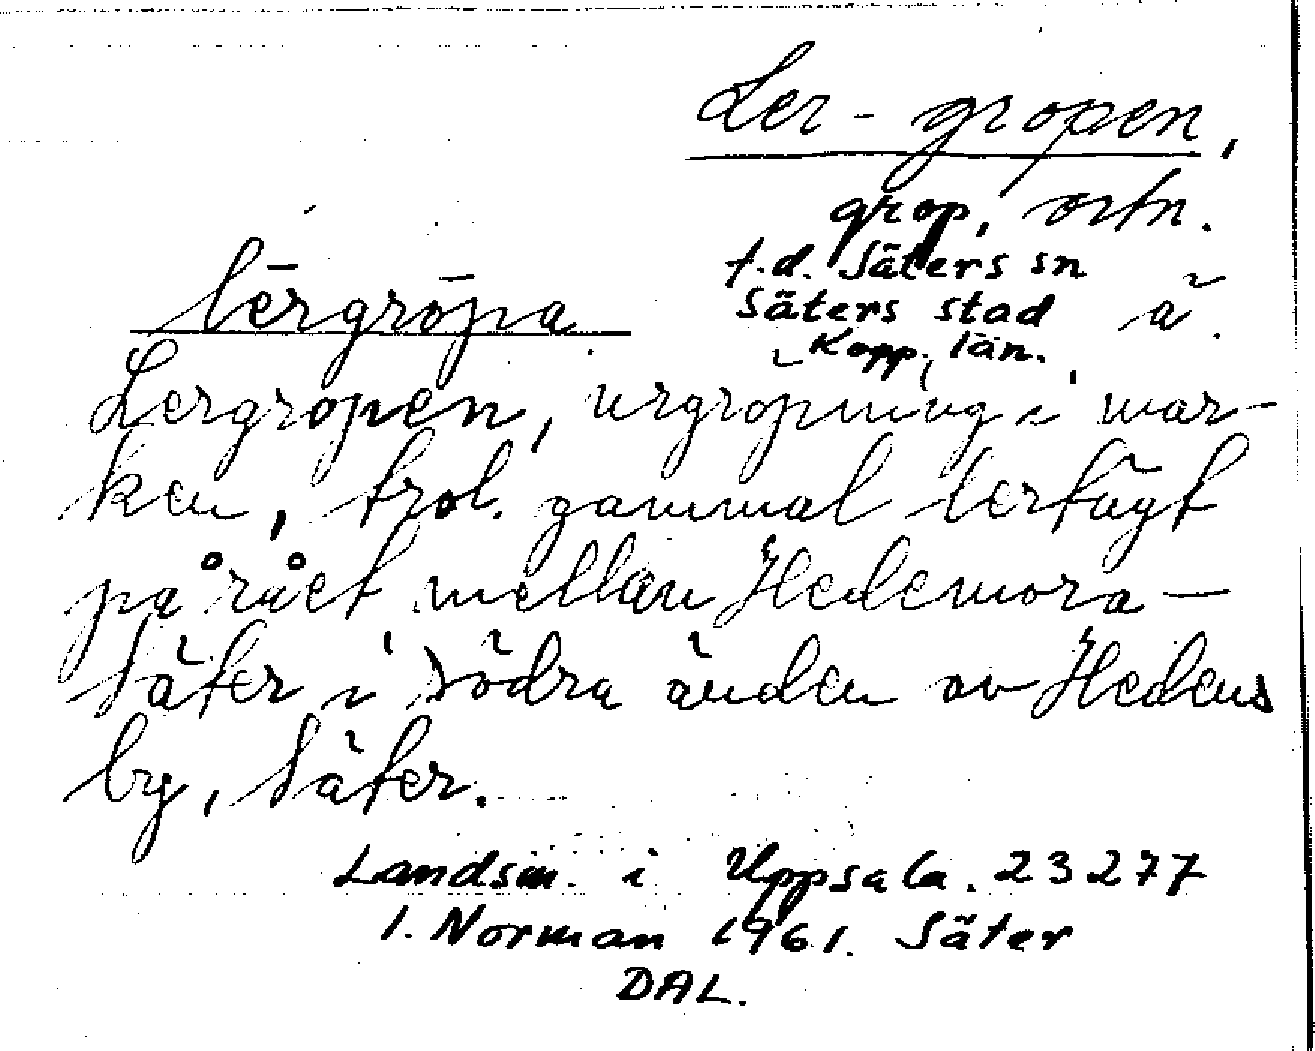 Ler-gropen,
grop, ortn.
f.d. Säters sn
Säters stad
Kopp. län.
lērgrōpa
Lergropen, urgröpning i mar-
ken, trol. gammal lertägt
på rået mellan Hedemora -
Säter i södra änden av Hedens
by, Säter.
Landsm. i Uppsala. 23277
I. Norman 1961. Säter
DAL.